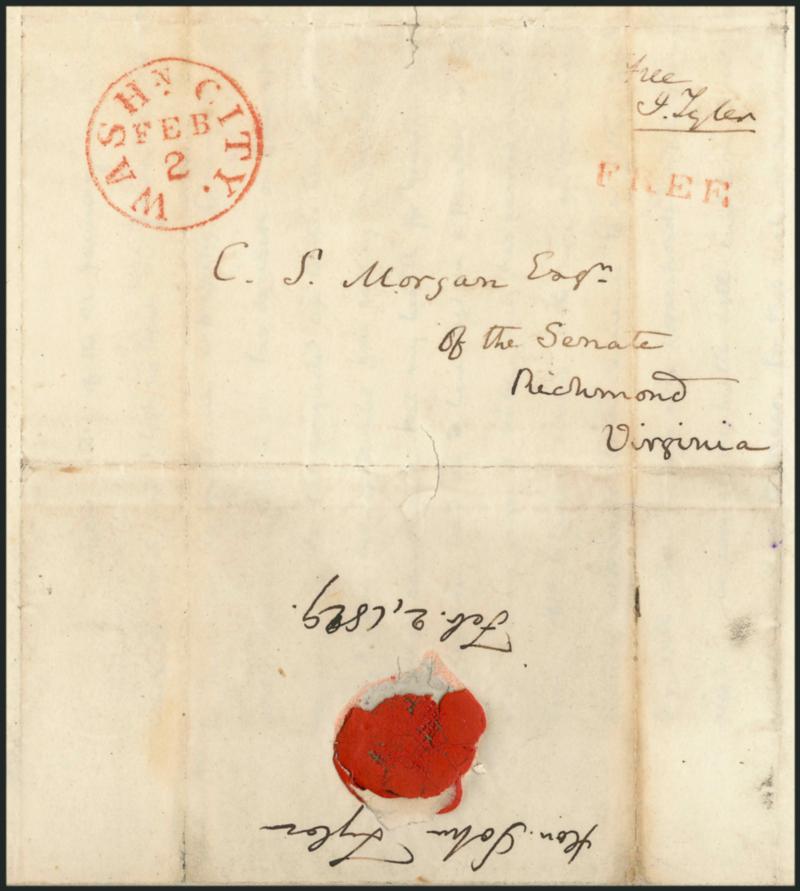 WASHN CITY.
FEB
2
free
J. Tyler
FREE
C. S. Morgan Esqr
Of the Senate
Richmond
Virginia
Feb. 2, 1829.
Hon. John Tyler